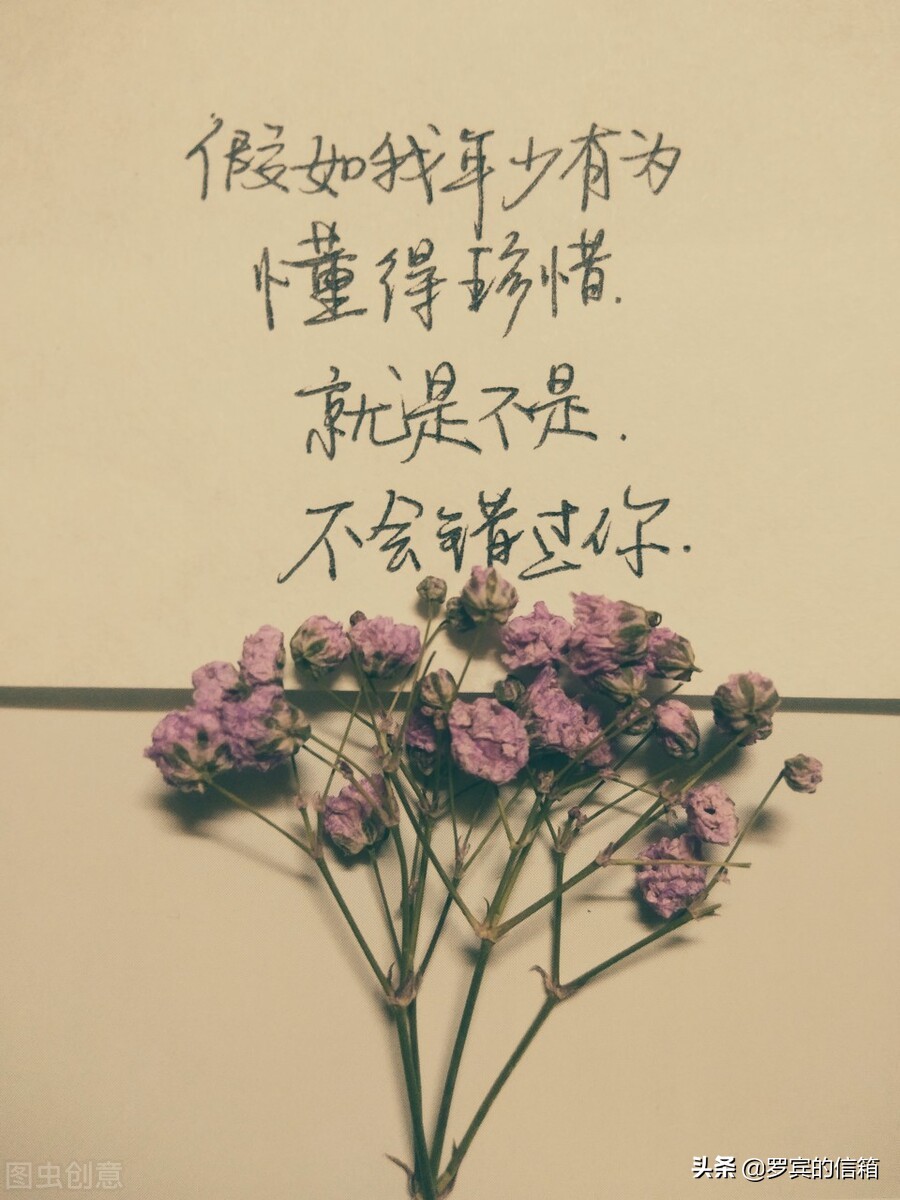 假如我年少有为
懂得珍惜.
就是不是.
不会错过你.
图虫创意
头条 @罗宾的信箱